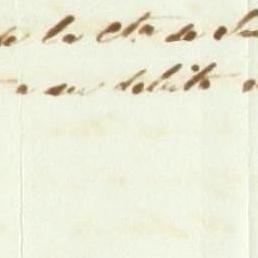 de la cta de
a su debito